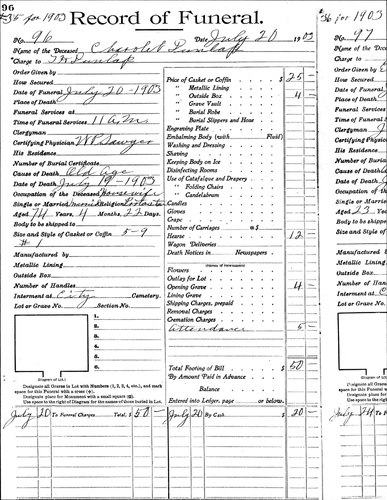 96
35 for 1903
Record of Funeral.
No. 96 Date July 20 1903
Name of the Deceased Dunlap
Charge to Dunlap
Order Given by
How Secured
Date of Funeral July 20 - 1903
Place of Death
Funeral Services at
Time of Funeral Services 11 A.M.
Clergyman
Certifying Physician W P Sawyer
His Residence
Number of Burial Certificate
Cause of Death Old Age
Date of Death July 19 - 1903
Occupation of the Deceased Housewife
Single or Married Married Religion
Aged 74 Years, 4 Months, 22 Days.
Body to be shipped
Size and Style of Casket or Coffin 5-9
# 1
Manufactured by
Metallic Lining
Outside Box
Number of Handles
Interment at City Cemetery.
Lot or Grave No. Section No.
1.
2.
3.
4.
5.
6.
(Diagram of Lot.)
Designate all Graves in Lot with Numbers (1, 2, 3, 4, etc.), and mark
space for this Funeral with a cross (+).
Designate place for Monument with a small square (□).
Use space to the right of Diagram for the names of those buried in Lot.
Price of Casket or Coffin $ 25 -
" Metallic Lining
" Outside Box 4 -
" Grave Vault
" Burial Robe
" Burial Slippers and Hose
Engraving Plate
Embalming Body (with Fluid)
Washing and Dressing
Shaving
Keeping Body on Ice
Disinfecting Rooms
Use of Catafalque and Drapery
" Folding Chairs
" Candelabrum
Candles
Gloves
Crape
Number of Carriages @ $
Hearse 12 -
Wagon Deliveries
Death Notices in Newspapers
Flowers
Outlay for Lot
Opening Grave 4 -
Lining Grave
Shipping Charges, prepaid
Removal Charges
Cremation Charges
Attendance 5 -
Total Footing of Bill $ 50 -
By Amount Paid in Advance
Balance
Entered into Ledger, page or below.
July 20 To Funeral Charges Total, $ 50 - July 20 By Cash $ 20 -
36 for 1903
No. 97
Name of the
Charge to
Order Given
How Secured
Date of Funeral
Place of Death
Funeral Services
Time of Funeral
Clergyman
Certifying
His Residence
Number of
Cause of Death
Date of Death
Occupation
Single or
Aged 23 Years
Body to be
Size and Style
Manufactured
Metallic Lining
Outside Box
Number of
Interment at
Lot or Grave
July 24 To